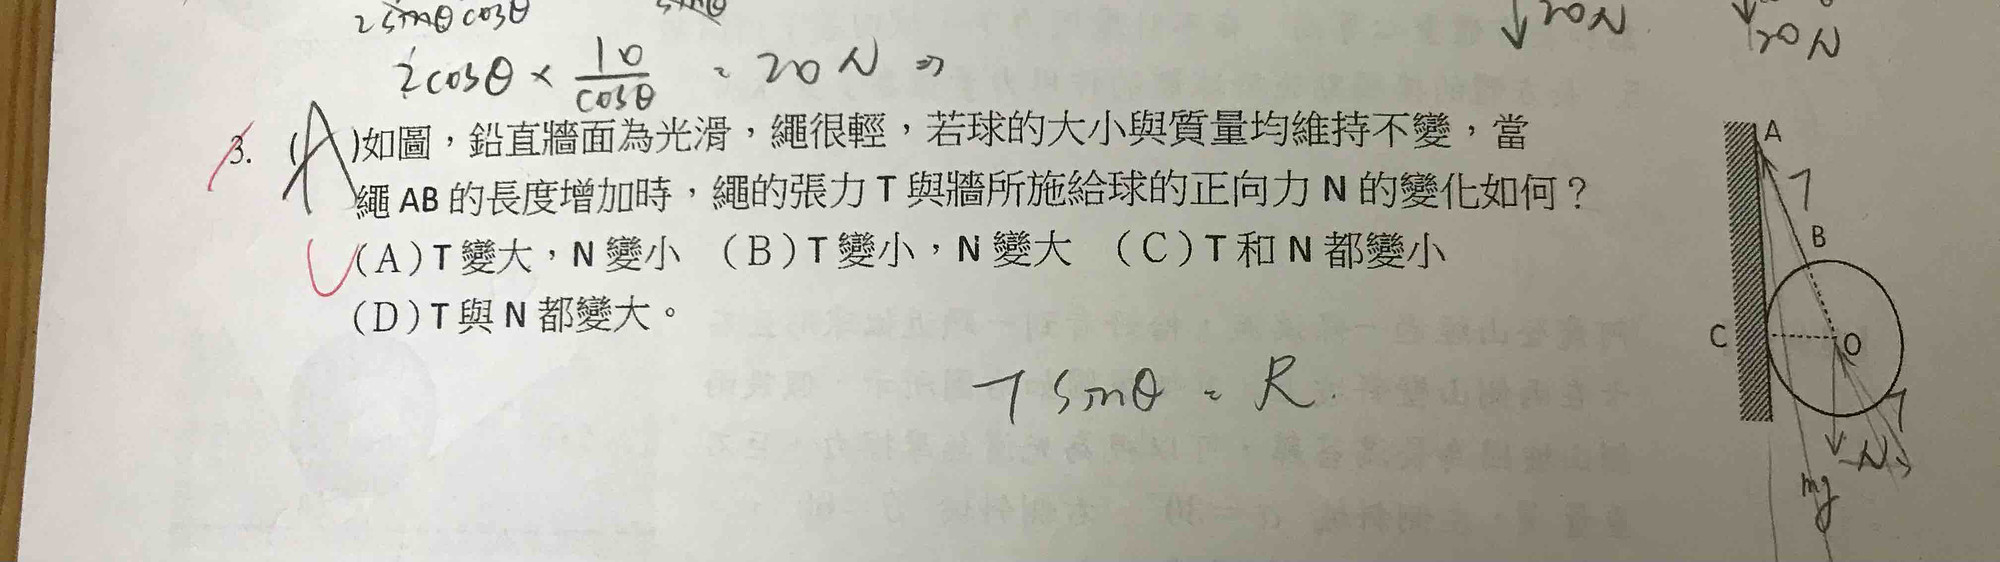 2sinθcosθ sinθ
2cosθ × 10/cosθ = 20N ⇒
20N 20N
3. (A)如圖，鉛直牆面為光滑，繩很輕，若球的大小與質量均維持不變，當
繩 AB 的長度增加時，繩的張力 T 與牆所施給球的正向力 N 的變化如何？
(A)T 變大，N 變小 (B)T 變小，N 變大 (C)T 和 N 都變小
(D)T 與 N 都變大。
T sinθ = R.
A
T
B
C O
T
N
mg